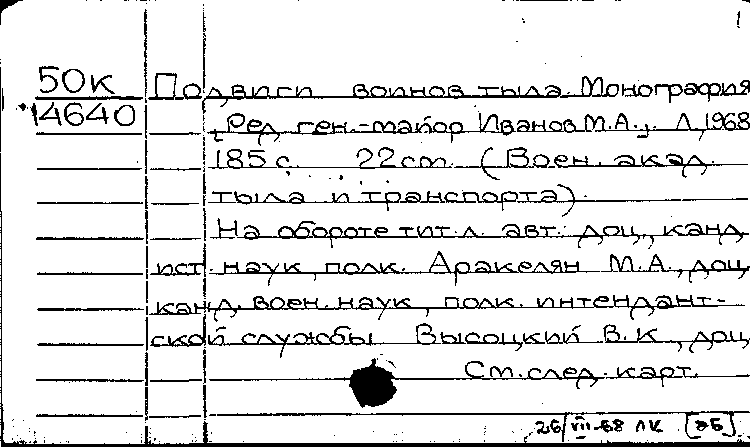 1
50К Подвиги воинов тыла. Монография
14640 [Ред. ген.-майор Иванов М.А.]. Л, 1968
185 с. 22 см. (Воен. акад.
тыла и транспорта).
На обороте тит. л. авт.: доц., канд.
ист. наук, полк. Аракелян М.А., доц.
канд. воен. наук, полк. интендант-
ской службы Высоцкий В.К., доц.
См. след. карт.
26/VII-68 ЛК [ЭБ]